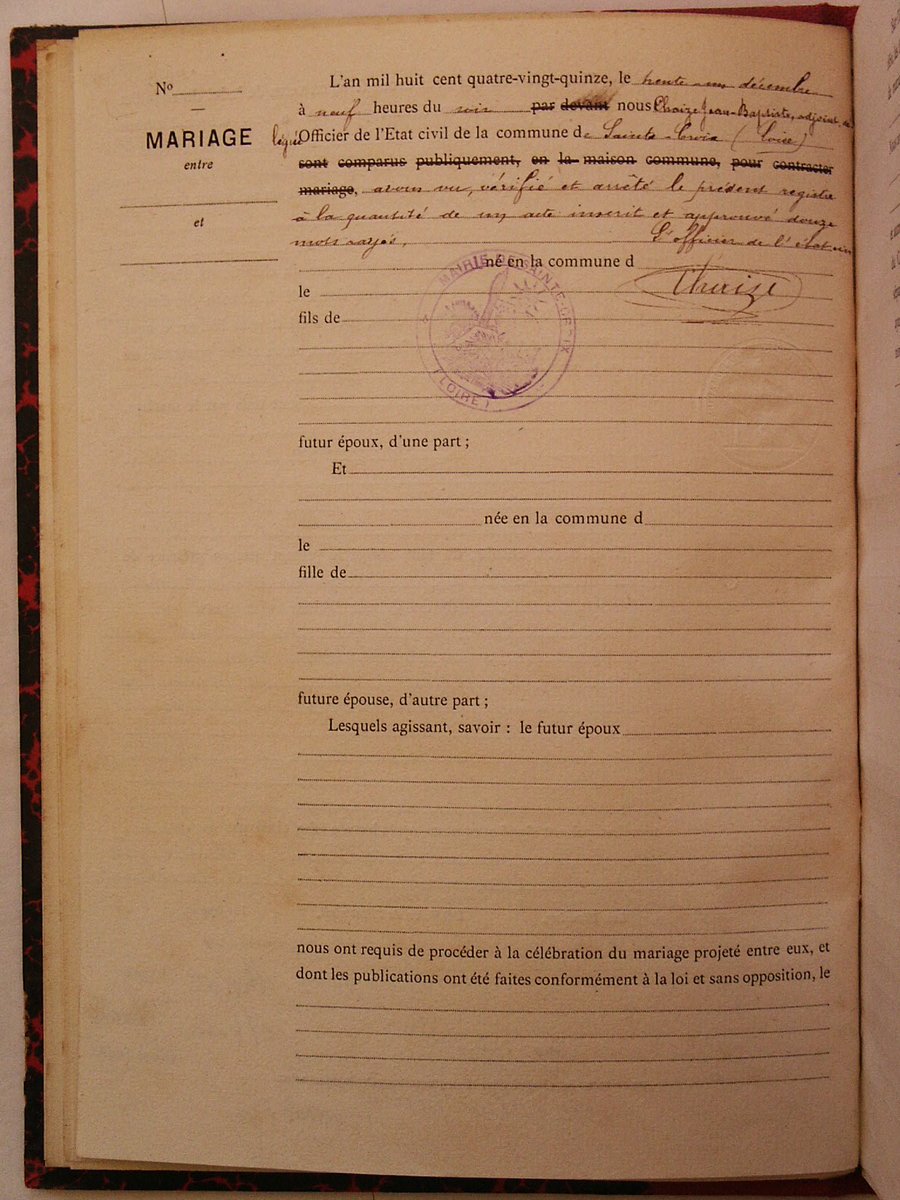 Nº
MARIAGE
entre
et
L'an mil huit cent quatre-vingt-quinze, le trente-un décembre
à neuf heures du soir par devant nous Chaize Jean-Baptiste, adjoint dé
légué Officier de l'Etat civil de la commune de Sainte-Croix (Loire)
sont comparus publiquement, en la maison commune, pour contracter
mariage, avons vu, vérifié et arrêté le présent registre
à la quantité de un acte inscrit et approuvé douze
mots rayés. L'officier de l'état civil
né en la commune d
Chaize
le
fils de
MAIRIE DE SAINTE-CROIX
(LOIRE)
futur époux, d'une part ;
Et
née en la commune d
le
fille de
future épouse, d'autre part ;
Lesquels agissant, savoir : le futur époux
nous ont requis de procéder à la célébration du mariage projeté entre eux, et
dont les publications ont été faites conformément à la loi et sans opposition, le